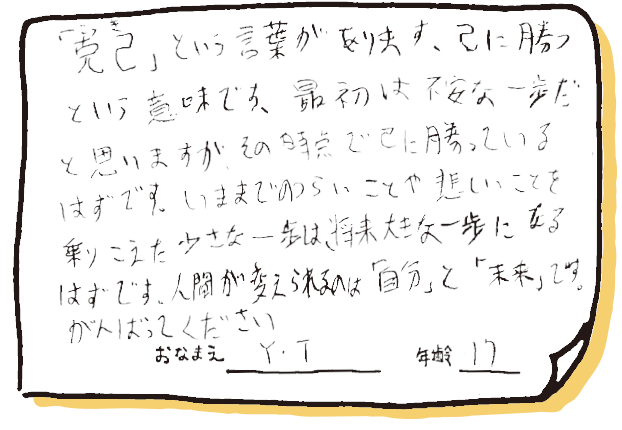 「克己」という言葉があります、己に勝つ
という意味です、最初は不安な一歩だ
と思いますが、その時点で己に勝っている
はずです。いままでのつらいことや悲しいことを
乗りこえた少さな一歩は、将来大きな一歩になる
はずです、人間が変えられるのは「自分」と「未来」です。
がんばってください
おなまえ Y・T 年齢 17